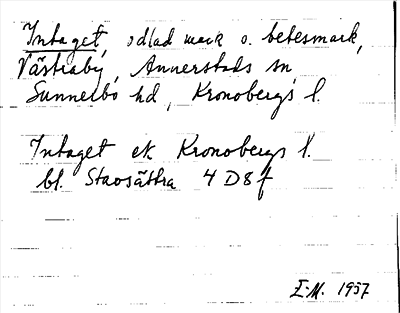 Intaget, odlad mark o. betesmark,
Västraby, Annerstads sn
Sunnerbo hd, Kronobergs l.
Intaget ek Kronobergs l.
bl. Stavsätra 4 D 8 f
E.M. 1957